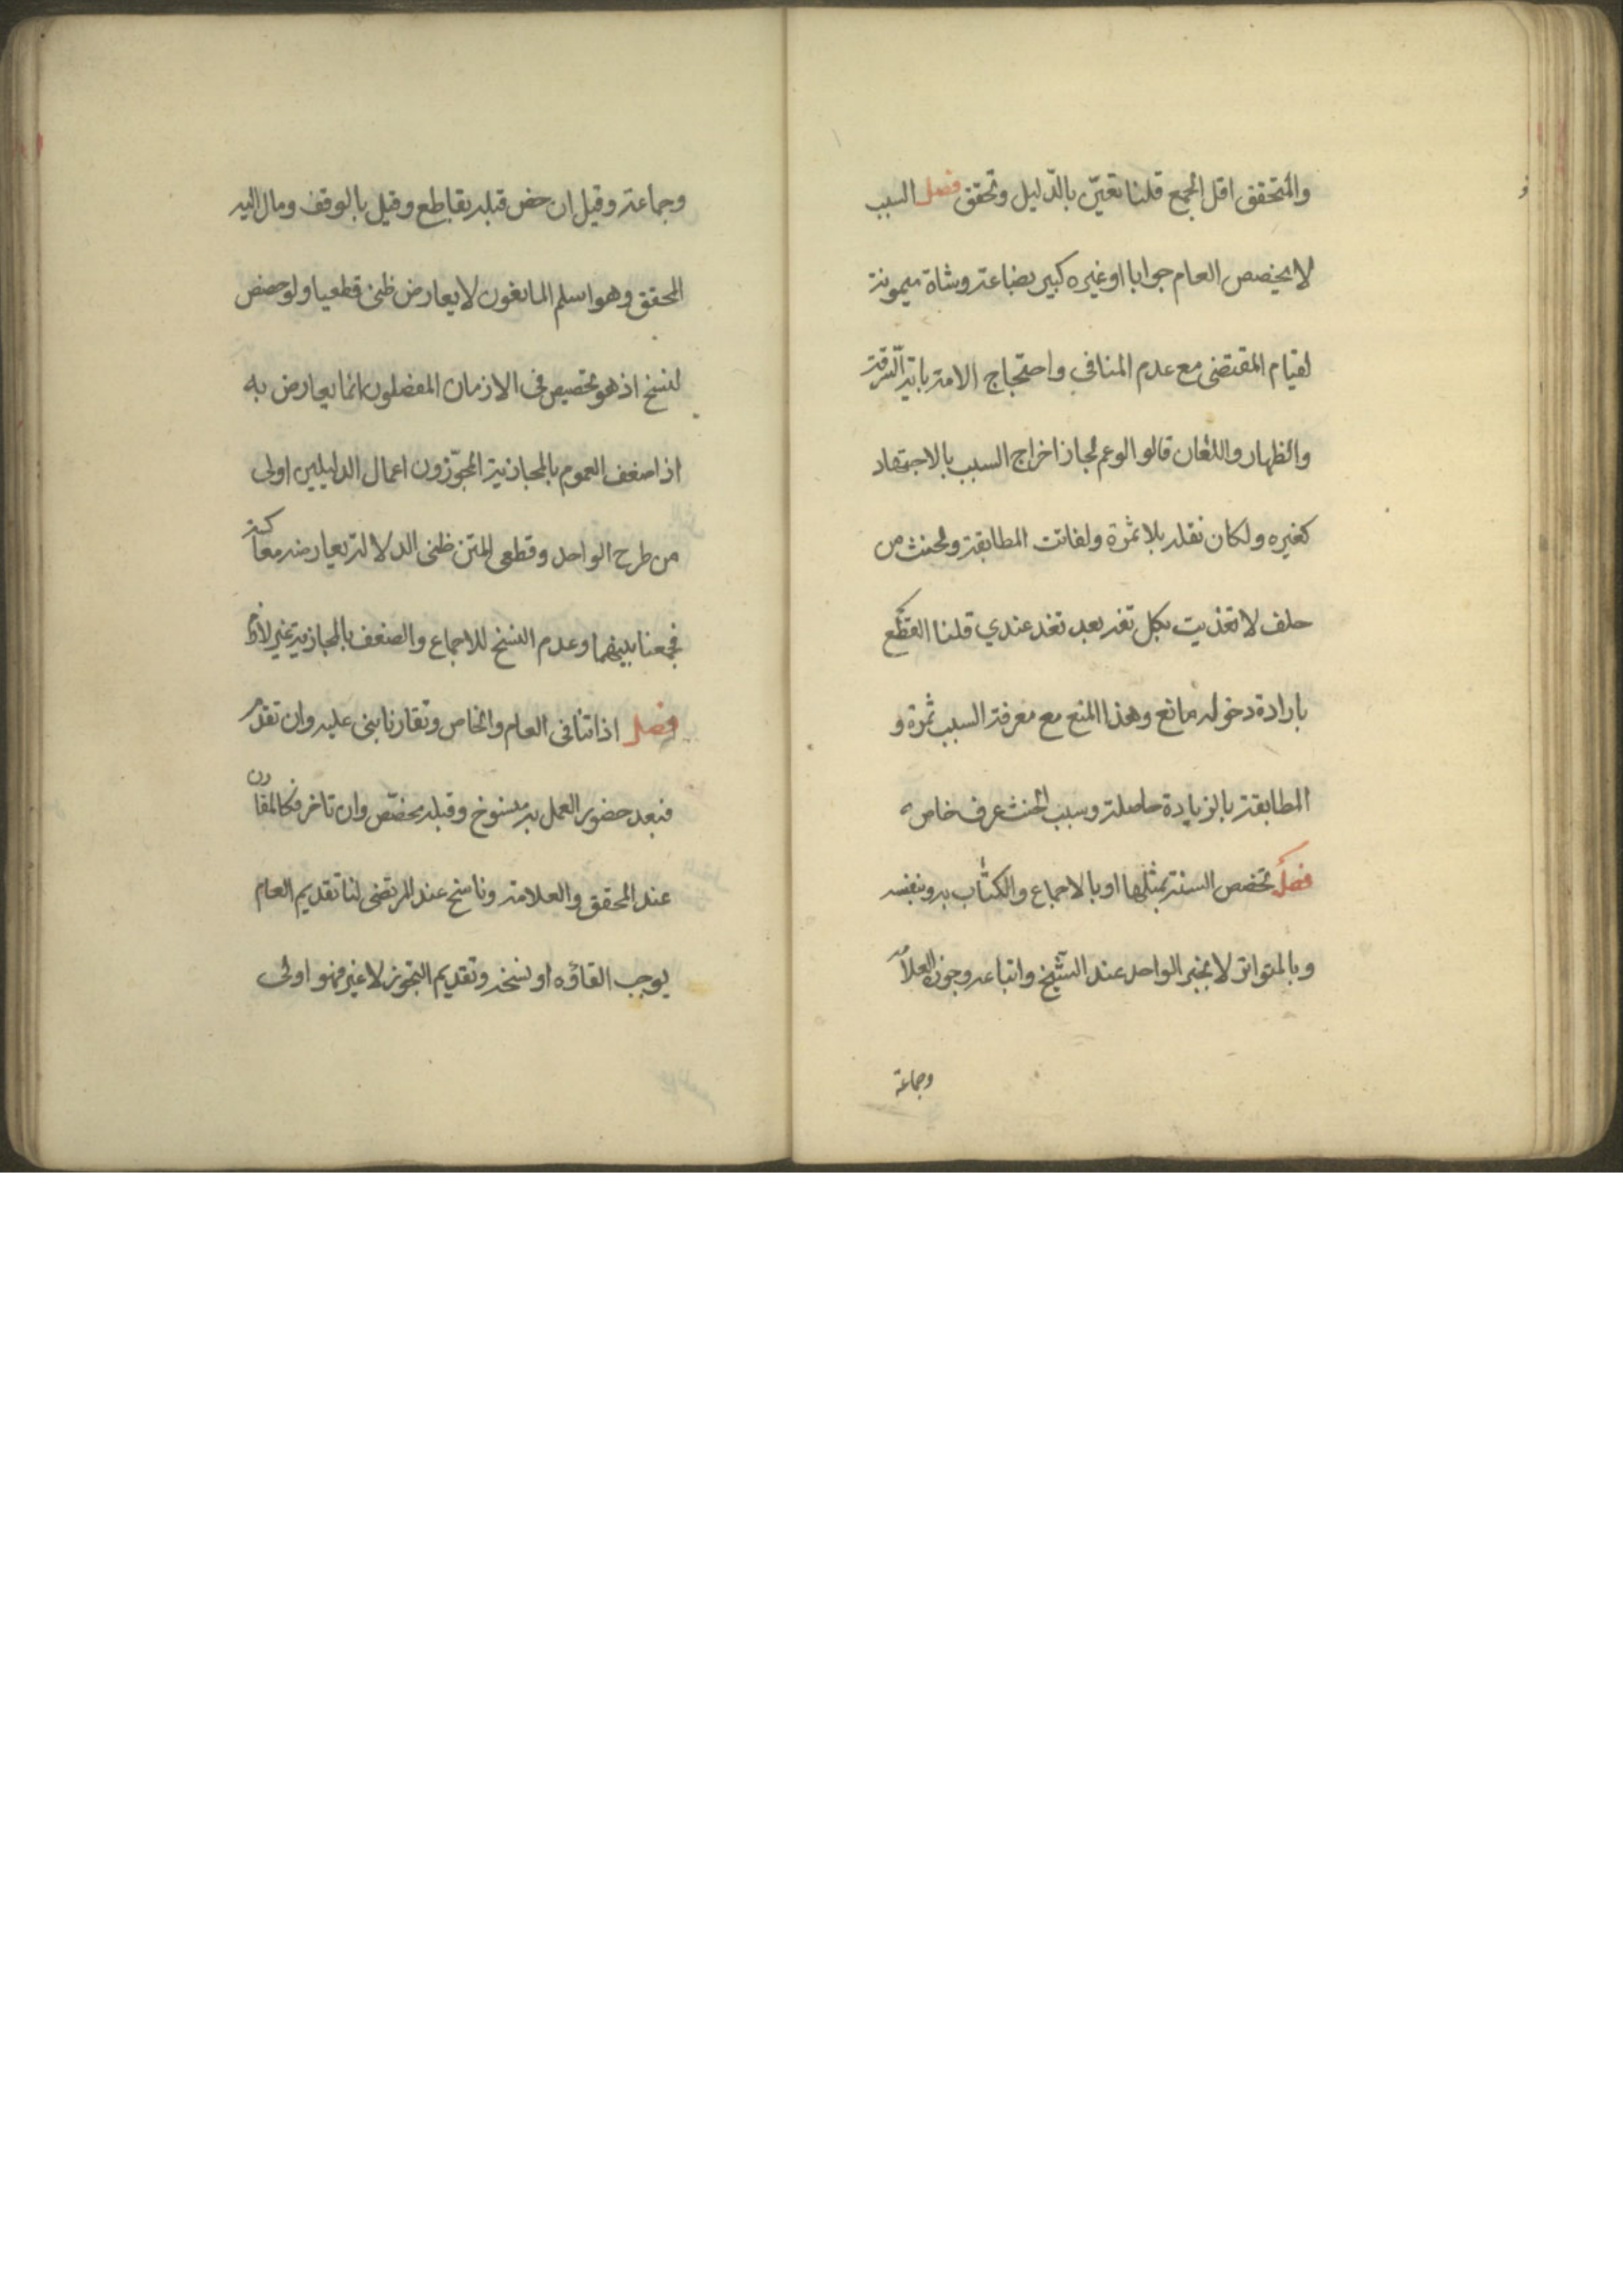 والمتحقق اقل الجمع قلنا تعيّن بالدّليل وتحقق فصل السبب
لا يخصص العام جوابا او غيره كبير بضاعة وشاة ميمونة
لقيام المقتضى مع عدم المنافي واحتجاج الامة باية السّرقة
والظهار واللعان قالوا لو عم لجاز اخراج السبب بالاجتهاد
كغيره ولكان نقله بلا ثمرة ولفاتت المطابقة ولحنث من
حلف لا تغذيت بكل تغد بعد تغد عندي قلنا القطع
بارادة دخوله مانع وهذا المنع مع معرفة السبب ثمرة و
المطابقة بالزيادة حاصلة وسبب الحنث عرف خاص
فصل تخصص السنة بمثلها او بالاجماع والكتاب به وبنفسه
وبالمتواتر لا بخبر الواحد عند الشّيخ واتباعه وجوزه العلامه
وجماعة
وجماعة وقيل ان خص قبله بقاطع وقيل بالوقف ومال اليه
المحقق وهو اسلم المانعون لا يعارض ظنى قطعيا ولو خصص
لنسخ اذ هو تخصيص فى الازمان المفصلون انما يعارض به
اذا ضعف العموم بالمجازية المجوّزون اعمال الدليلين اولى
من طرح الواحد وقطعى المتن ظنى الدلالة يعارضه معاكسة
فجمعنا بينهما وعدم النسخ للاجماع والضعف بالمجازية غير لازم
فصل اذا تنافى العام والخاص وتقارنا بنى عليه وان تقدم
فبعد حضور العمل به منسوخ وقبله مخصّص وان تاخر فكالمقارن
عند المحقق والعلامة وناسخ عند المرتضى لنا تقديم العام
يوجب القاؤه او نسخه وتقديم التجوز لا غير فهو اولى